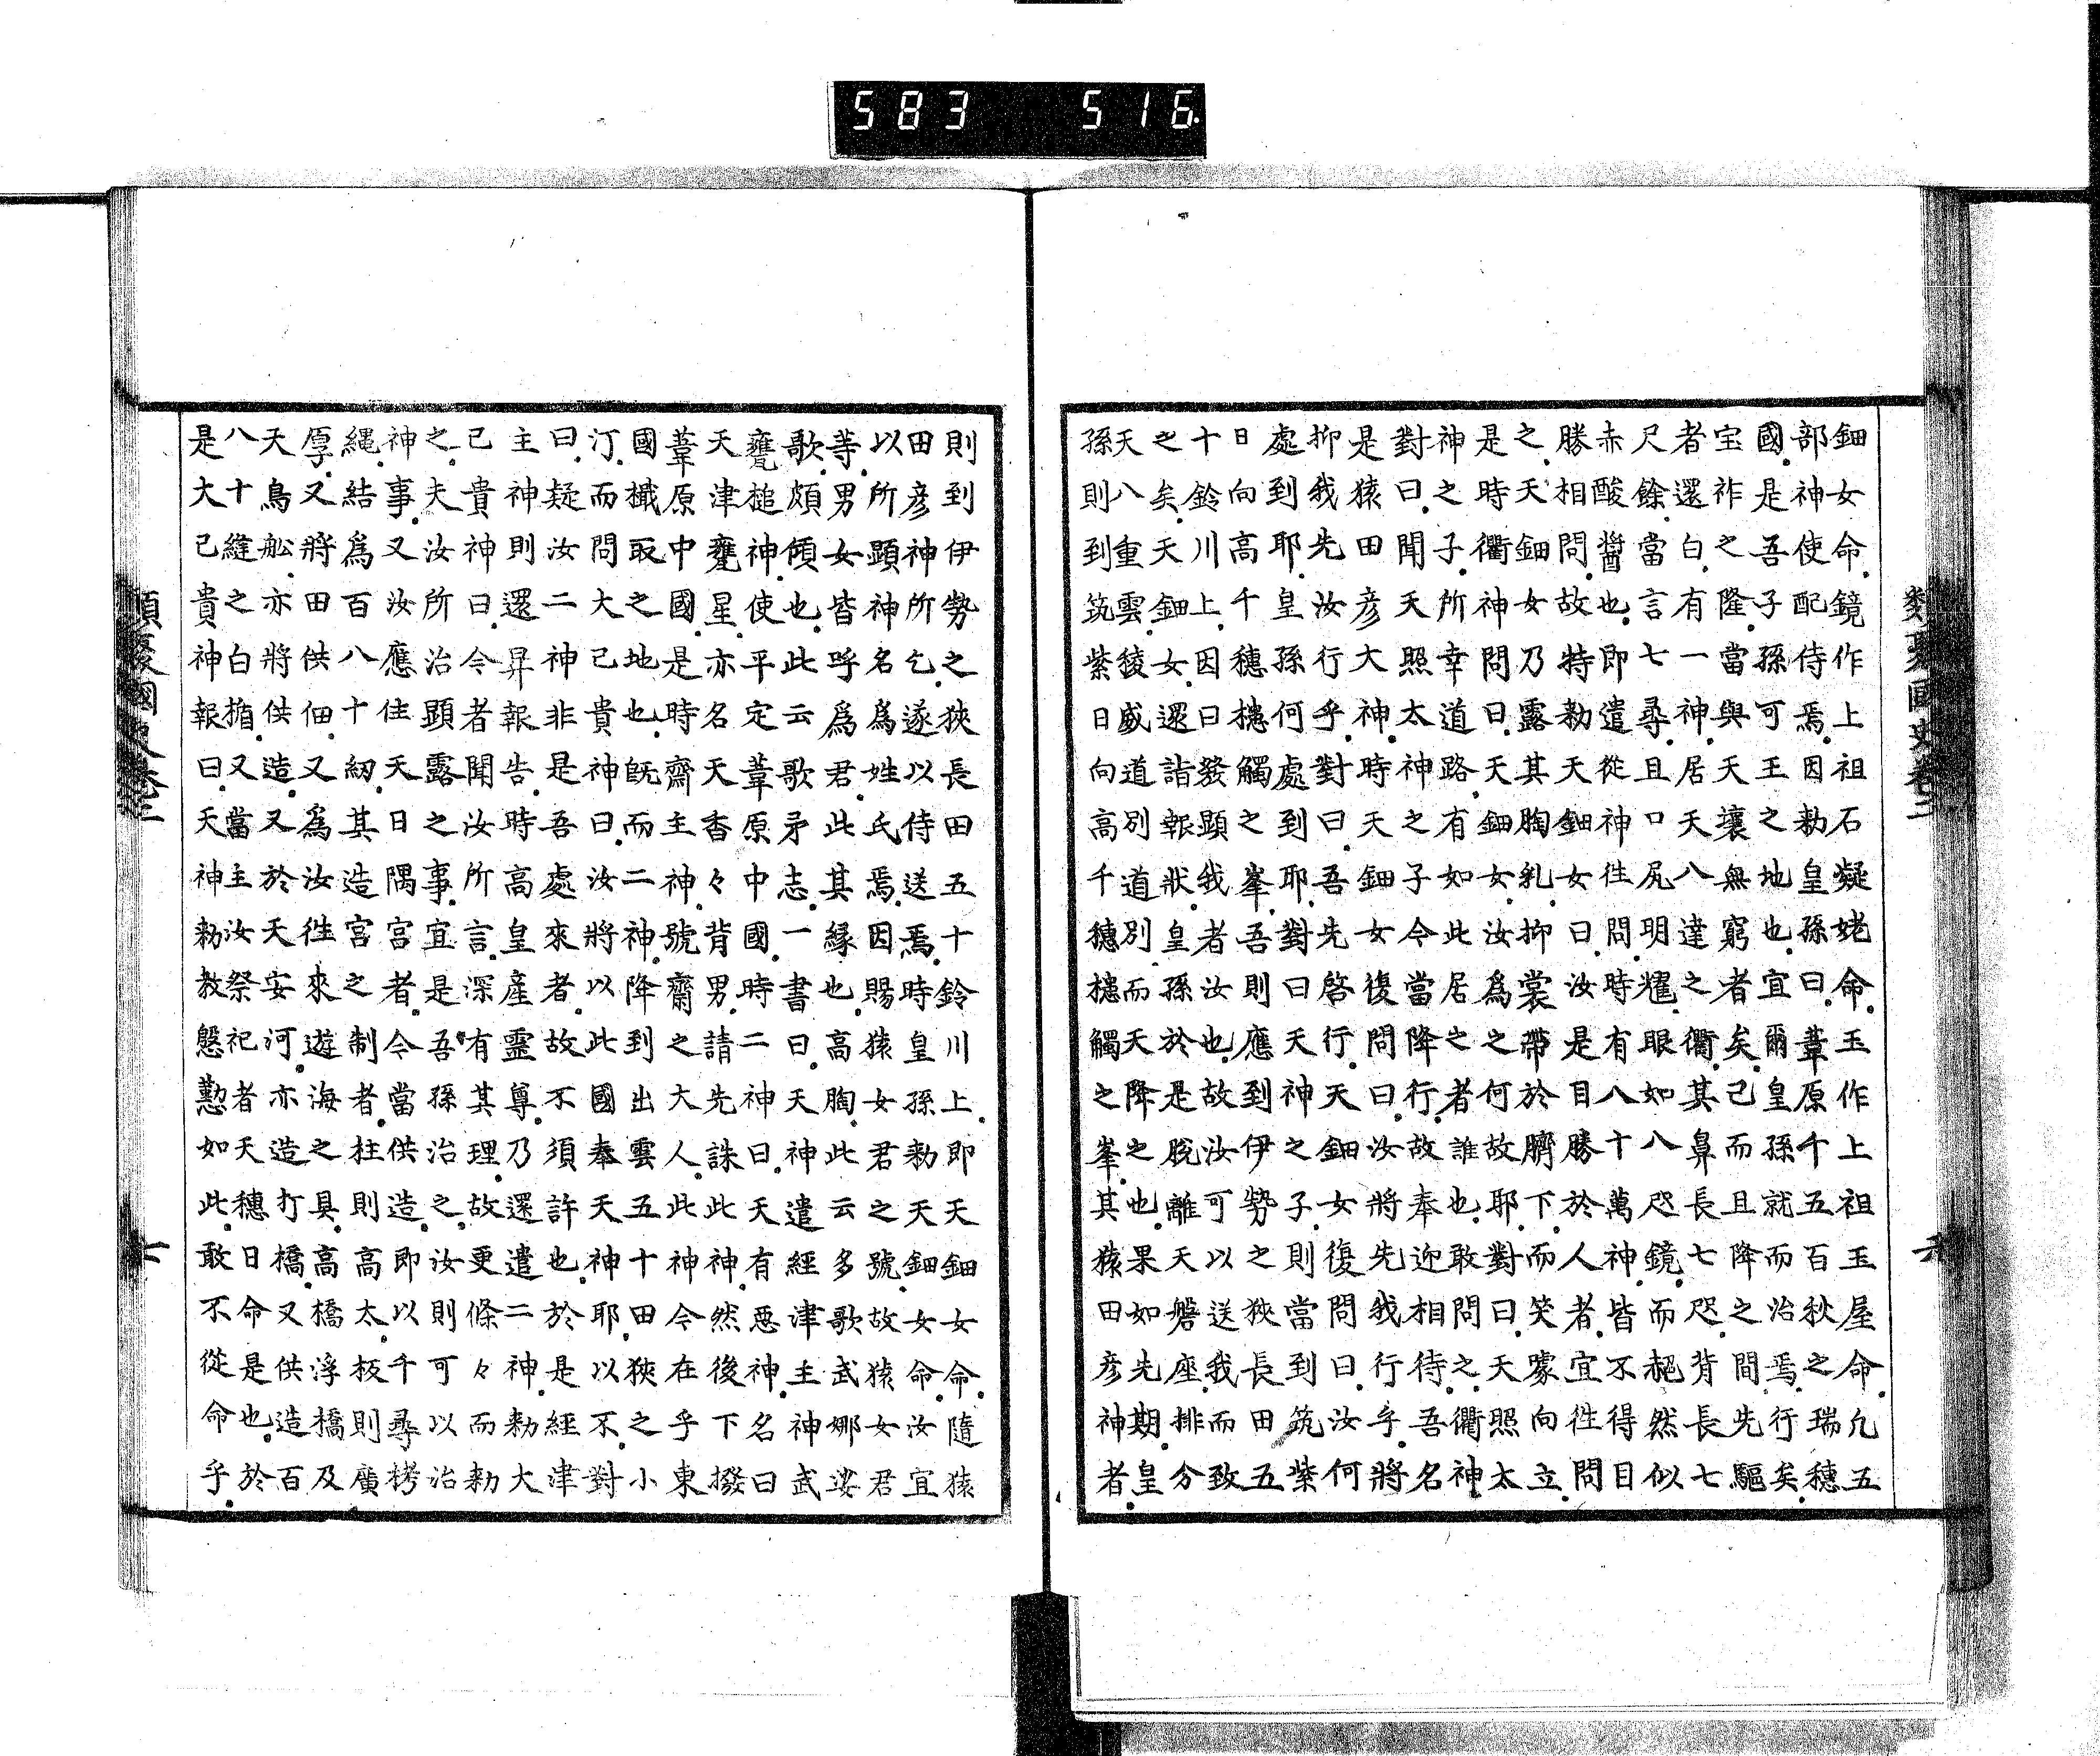 583 516
類聚國史卷三
六
鈿女命鏡作上祖石凝姥命玉作上祖玉屋命凡五
部神使配侍焉因勅皇孫曰葦原千五百秋之瑞穗
國是吾子孫可王之地也宜爾皇孫就而治焉行矣
宝祚之隆當與天壤無窮者矣已而且降之間先驅
者還白有一神居天八達之衢其鼻長七咫背長七
尺餘當言七尋且口尻明耀眼如八咫鏡而赩然似
赤酸醬也即遣從神往問時有八十萬神皆不得目
勝相問故特勅天鈿女曰汝是目勝於人者宜往問
之天鈿女乃露其胸乳抑裳帶於臍下而笑噱向立
是時衢神問曰天鈿女汝爲之何故耶對曰天照太
神之子所幸道路有如此居之者誰也敢問之衢神
對曰聞天照太神之子今當降行故奉迎相待吾名
是猿田彦大神時天鈿女復問曰汝將先我行乎將
抑我先汝行乎對曰吾先啓行天鈿女復問曰汝何
處到耶皇孫何處到耶對曰天神之子則當到筑紫
日向高千穗槵觸之峯吾則應到伊勢之狹長田五
十鈴川上因曰發顯我者汝也故汝可以送我而致
之矣天鈿女還詣報狀皇孫於是脫離天磐座排分
天八重雲稜威道別道別而天降之也果如先期皇
孫則到筑紫日向高千穗槵觸之峯其猿田彦神者
則到伊勢之狹長田五十鈴川上即天鈿女命隨猿
田彦神所乞遂以侍送焉時皇孫勅天鈿女命汝宜
以所顯神名爲姓氏焉因賜猿女君之號故猿女君
等男女皆呼爲君此其縁也高胸此云多歌武娜娑
歌頗傾也此云歌矛志一書曰天神遣經津主神武
甕槌神使平定葦原中國時二神曰天有惡神名曰
天津甕星亦名天香々背男請先誅此神然後下撥
葦原中國是時齋主神號齋之大人此神今在乎東
國檝取之地也旣而二神降到出雲五十田狹之小
汀而問大己貴神曰汝將以此國奉天神耶以不對
曰疑汝二神非是吾處來者故不須許也於是經津
主神則還昇報告時高皇産靈尊乃還遣二神勅大
己貴神曰今者聞汝所言深有其理故更條々而勅
之夫汝所治顯露之事宜是吾孫治之汝則可以治
神事又汝應住天日隅宮者今當供造即以千尋栲
繩結爲百八十紉其造宮之制者柱則高太板則廣
厚又將田供佃又爲汝往來遊海之具高橋浮橋及
天鳥舩亦將供造又於天安河亦造打橋又供造百
八十縫之白楯又當主汝祭祀者天穗日命是也於
是大己貴神報曰天神勅教慇懃如此敢不從命乎